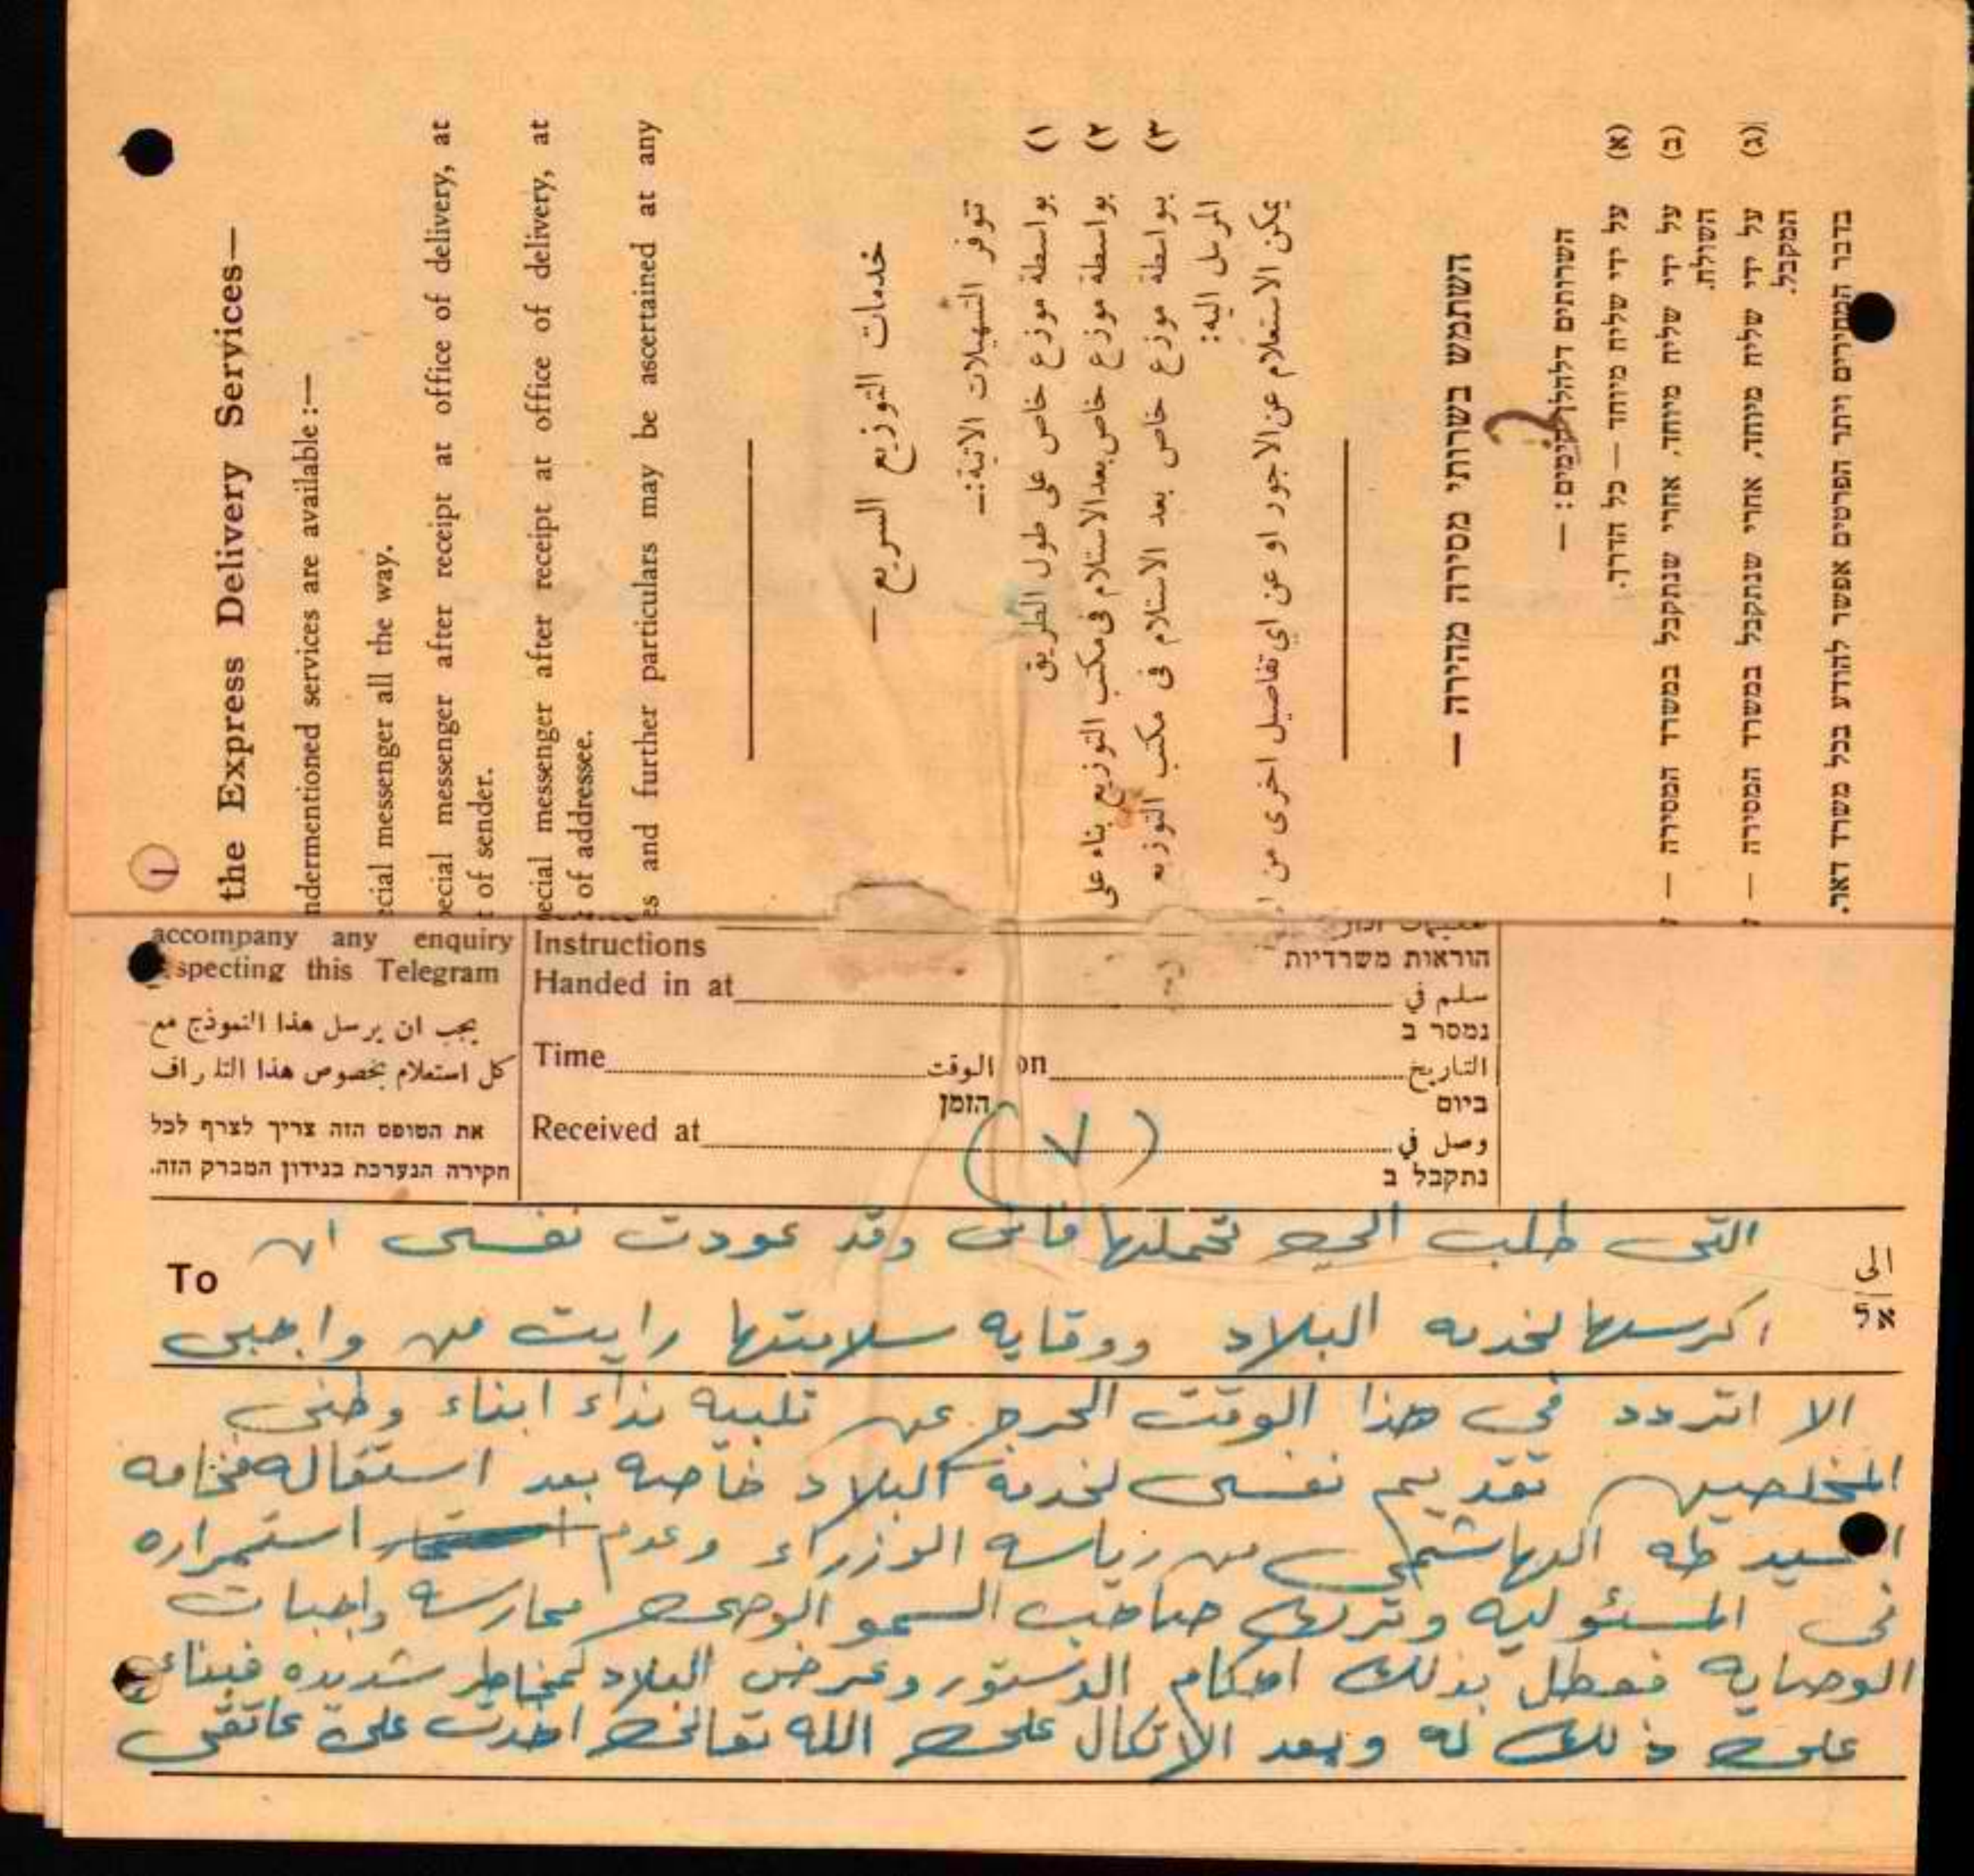 the Express Delivery Services—
ndermentioned services are available :—
ecial messenger all the way.
pecial messenger after receipt at office of delivery, at
t of sender.
ecial messenger after receipt at office of delivery, at
of addressee.
es and further particulars may be ascertained at any
خدمات التوزيع السريع —
تتوفر التسهيلات الاتية:—
١) بواسطة موزع خاص على طول الطريق
٢) بواسطة موزع خاص بعد الاستلام في مكتب التوزيع بناء على
٣) بواسطة موزع خاص بعد الاستلام في مكتب التوزيع
المرسل اليه:
يمكن الاستعلام عن الاجور او عن اي تفاصيل اخرى من
השתמש בשרותי מסירה מהירה —
השרותים דלהלן קימים: —
(א) על ידי שליח מיוחד — כל הדרך.
(ב) על ידי שליח מיוחד, אחרי שנתקבל במשרד המסירה —
השולח.
(ג) על ידי שליח מיוחד, אחרי שנתקבל במשרד המסירה —
המקבל.
בדבר המחירים ויתר הפרטים אפשר להודע בכל משרד דאר.
accompany any enquiry
specting this Telegram
يجب ان يرسل هذا النموذج مع
كل استعلام بخصوص هذا التلراف
את הטופס הזה צריך לצרף לכל
חקירה הנערכת בנידון המברק הזה.
Instructions
הוראות משרדיות
Handed in at سلم في
נמסר ב
Time الوقت on التاريخ
הזמן ביום
Received at وصل في
נתקבל ב
(٧)
To الى
אל
التى طلب الي تحملها فانى وقد عودت نفسى ان
اكرسها لخدمه البلاد ووقايه سلامتها رايت من واجبى
الا اتردد في هذا الوقت الحرج عن تلبيه نداء ابناء وطنى
المخلصين تقديم نفسى لخدمة البلاد خاصه بعد استقاله فخامه
السيد طه الهاشمي من رياسه الوزراء وعدم استمراره
فى المسئوليه وترك صاحب السمو الوصى ممارسه واجبات
الوصايه فعطل بذلك احكام الدستور وعرض البلاد لمخاطر شديده فبناء
على ذلك له وبعد الاتكال على الله تعالى اخذت على عاتقى